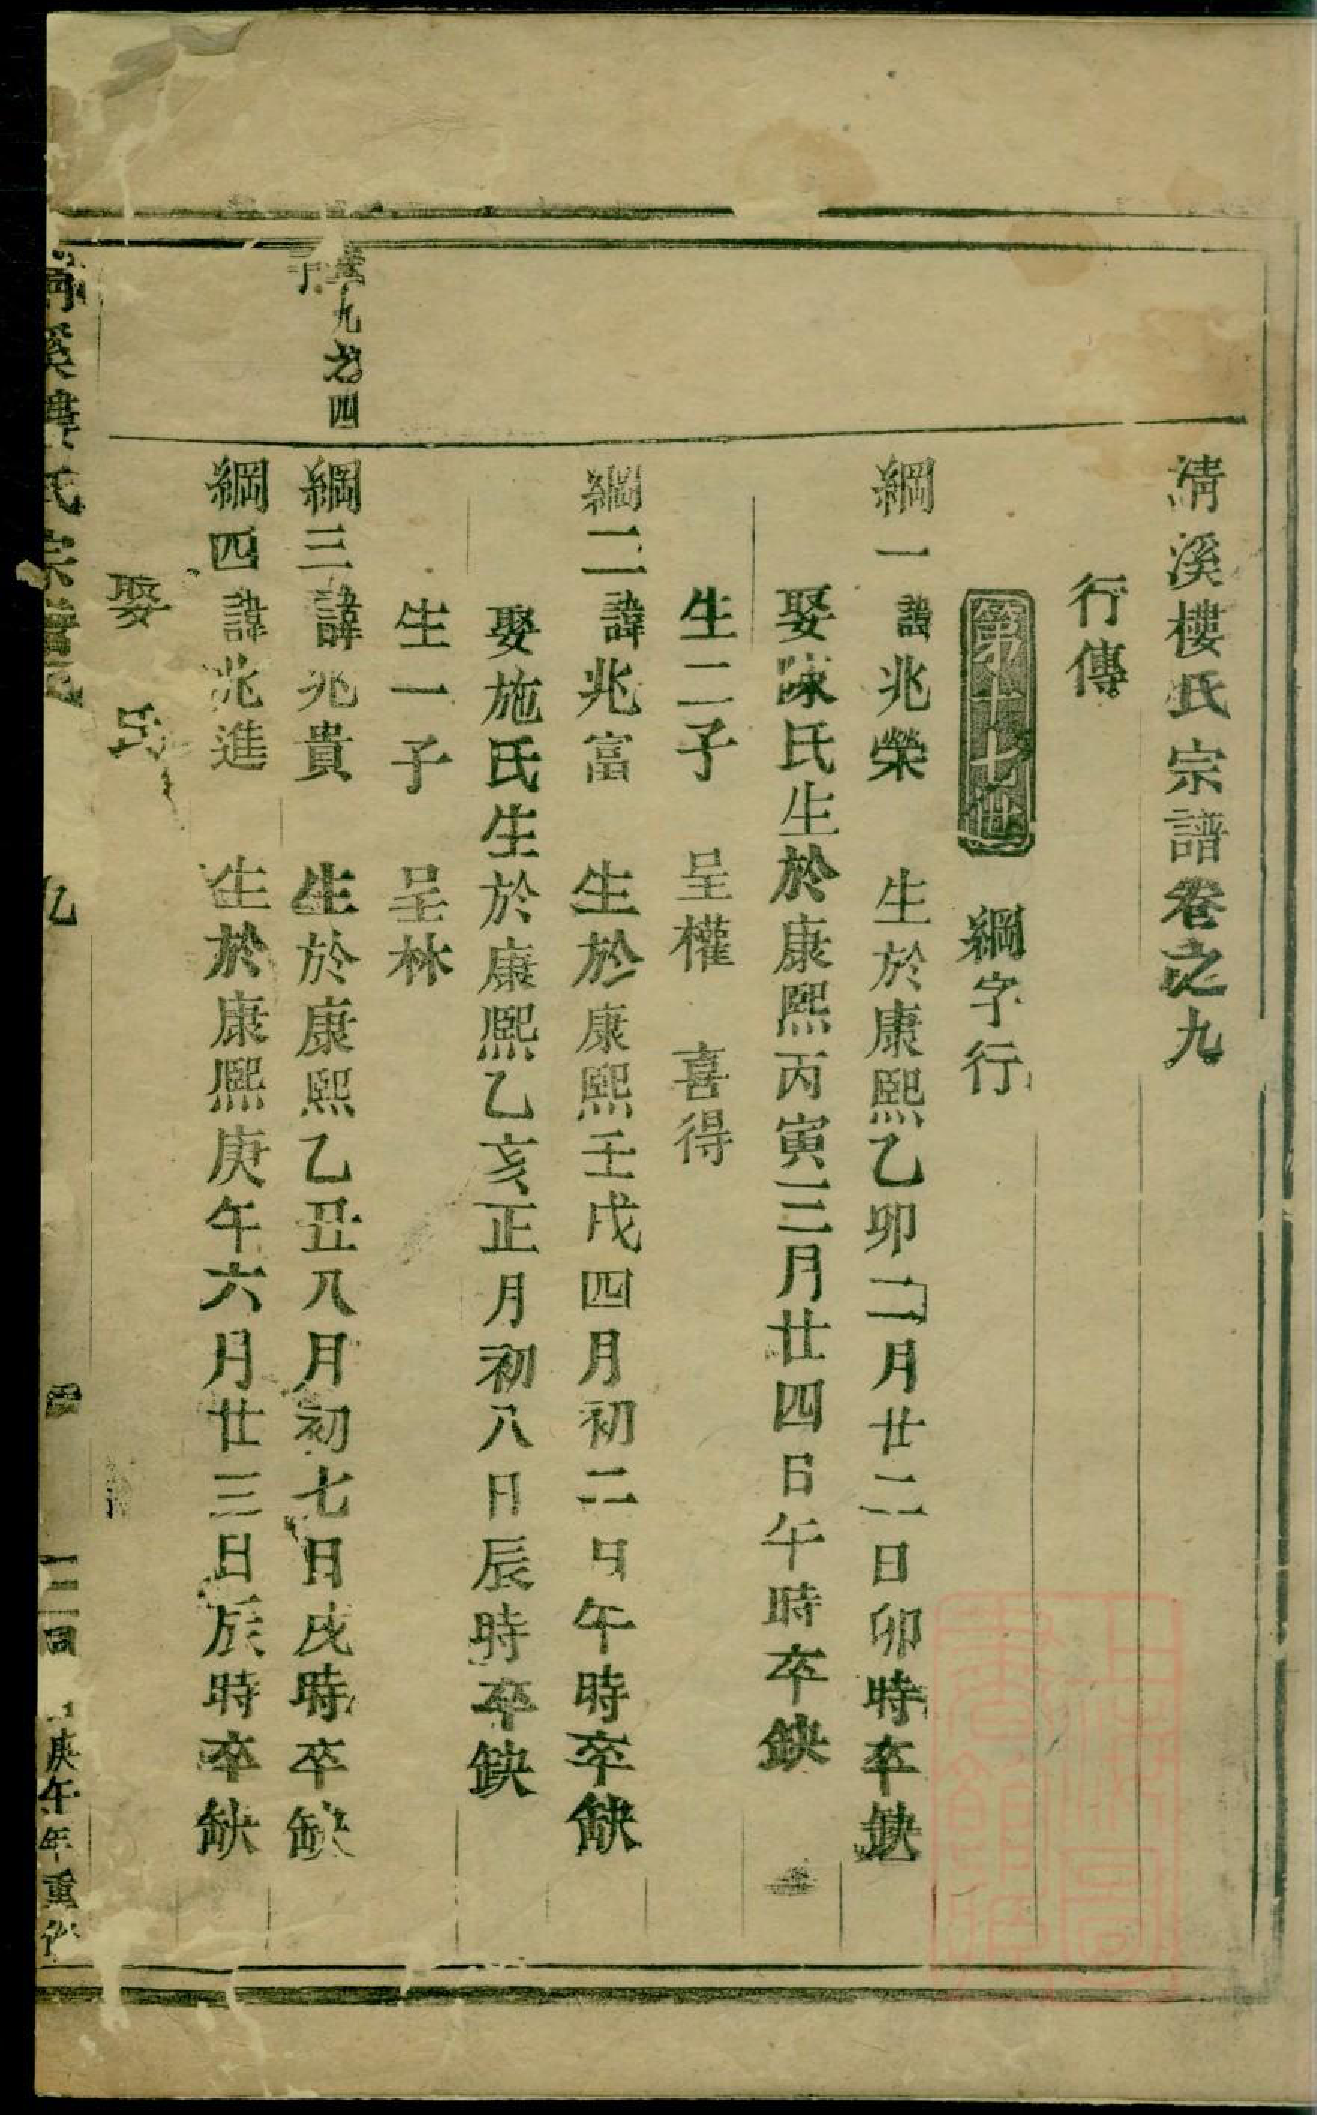 清溪樓氏宗譜卷之九
行傳
第十七世 綱字行
綱一諱兆榮 生於康熙乙卯二月廿二日卯時卒缺
娶陳氏生於康熙丙寅三月廿四日午時卒缺
生二子 呈權 喜得
綱二諱兆富 生於康熙壬戌四月初二日午時卒缺
娶施氏生於康熙乙亥正月初八日辰時卒缺
生一子 呈林
九老四
子
綱三諱兆貴 生於康熙乙丑八月初七日戌時卒缺
綱四諱兆進 生於康熙庚午六月廿三日辰時卒缺
娶 氏
清溪樓氏宗譜 九 庚午年重修
上海圖書館藏